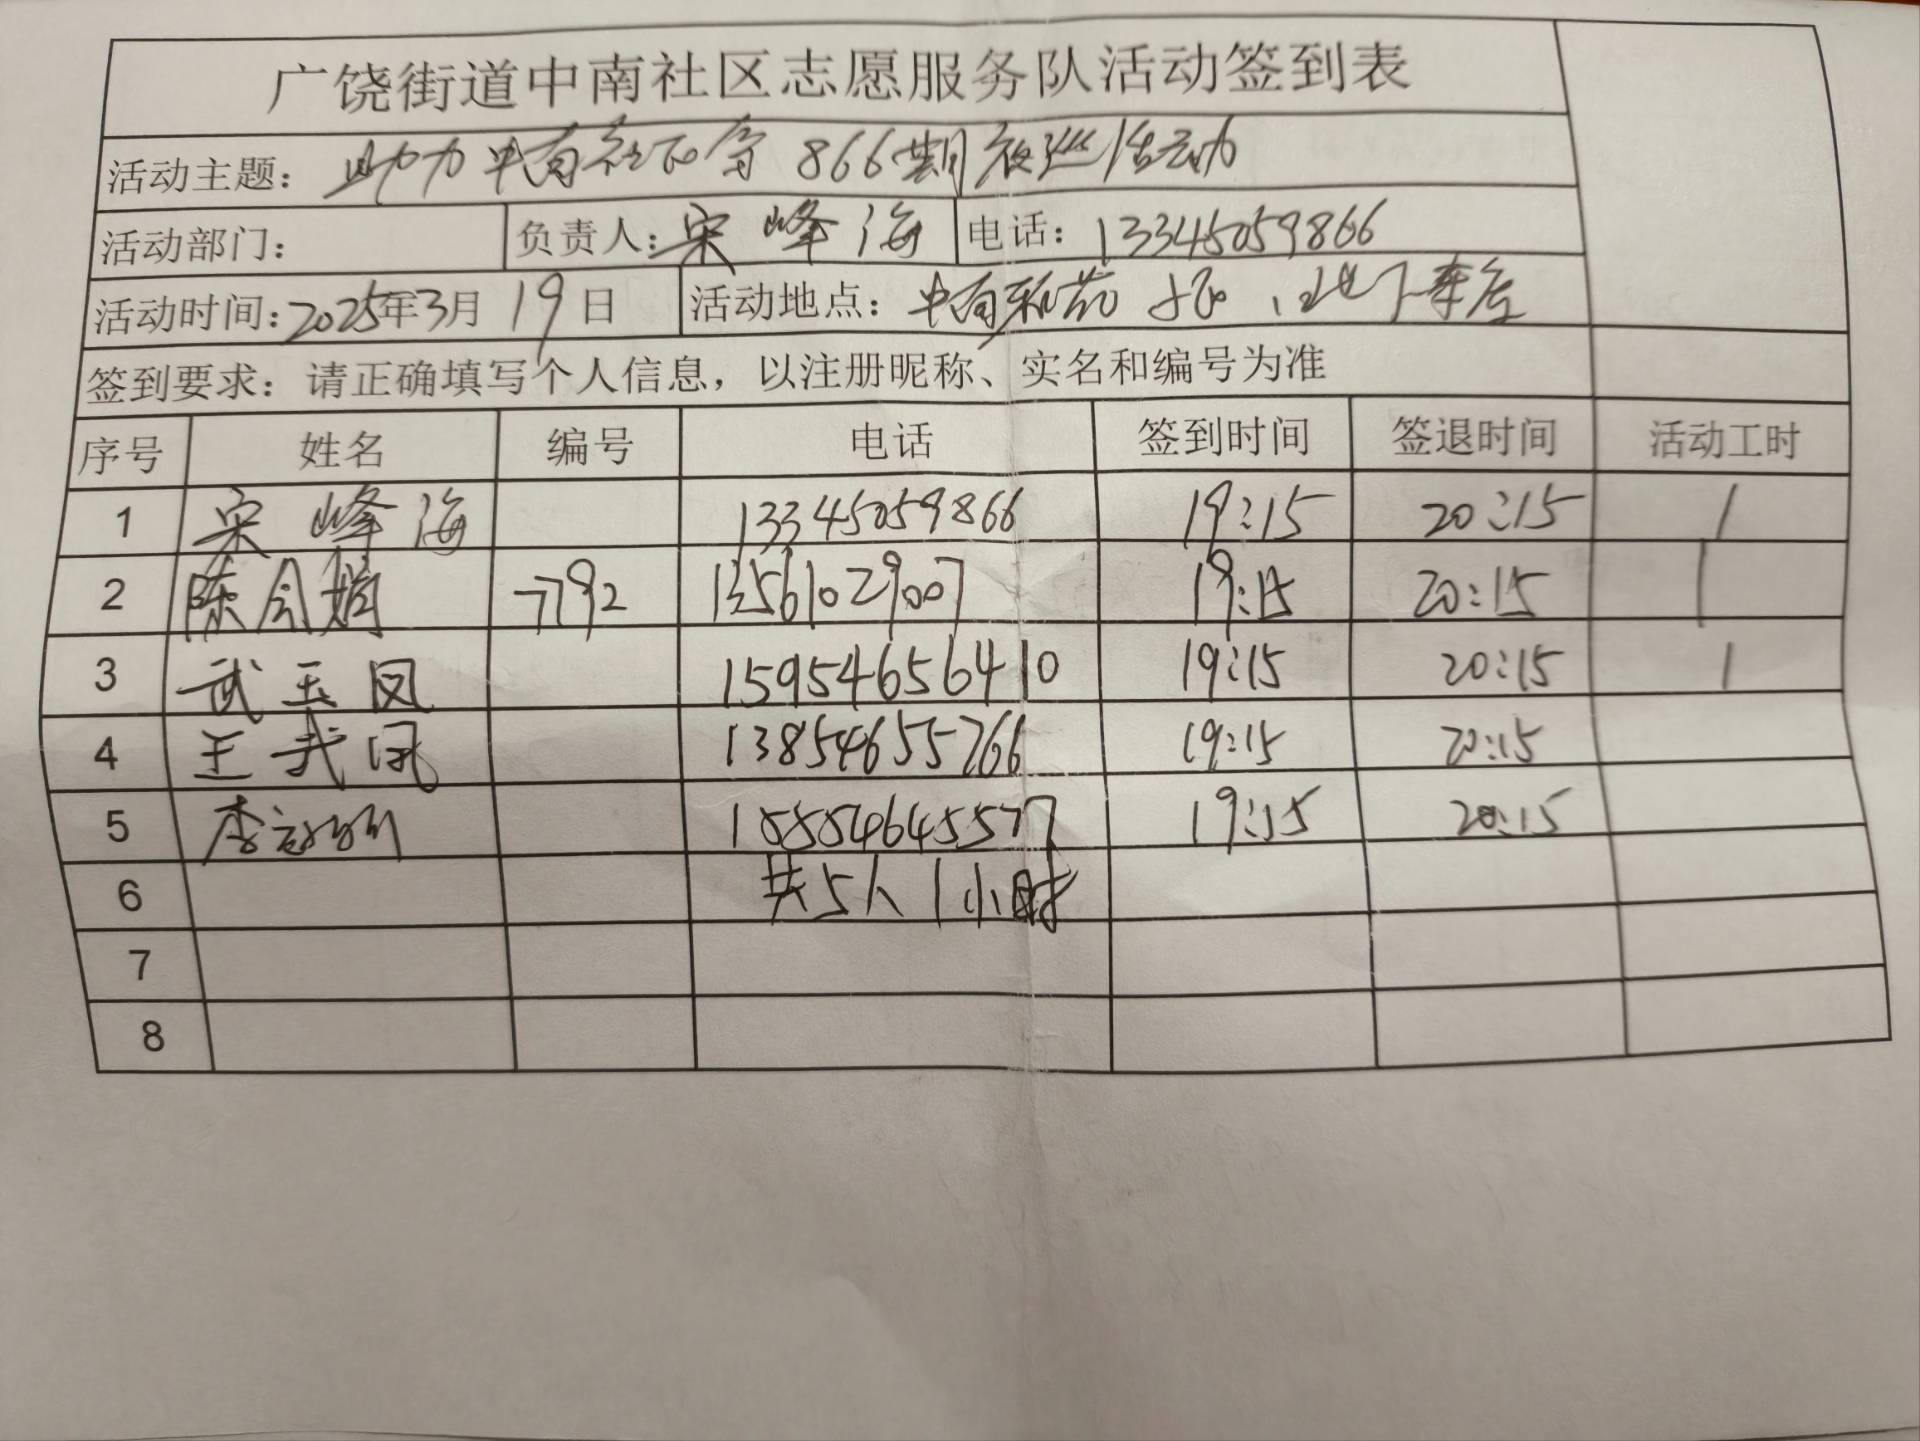 广饶街道中南社区志愿服务队活动签到表
活动主题: 助力中南社区第866期夜巡活动
活动部门: 负责人: 宋峰海 电话: 13345059866
活动时间: 2025年3月19日 活动地点: 中南 、地下车库
签到要求: 请正确填写个人信息，以注册昵称、实名和编号为准
序号 姓名 编号 电话 签到时间 签退时间 活动工时
1 宋峰海 13345059866 19:15 20:15 1
2 陈令娟 7792 13561029007 19:15 20:15 1
3 武玉凤 15954656410 19:15 20:15 1
4 王武凤 13854655766 19:15 20:15
5 李 19:15 20:15
6 共5人1小时
7
8